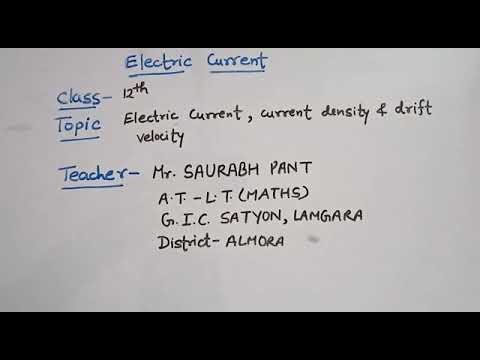 Electric Current
Class- 12th
Topic Electric Current, current density & drift
velocity
Teacher- Mr. SAURABH PANT
A.T. - L.T. (MATHS)
G.I.C. SATYON, LAMGARA
District- ALMORA